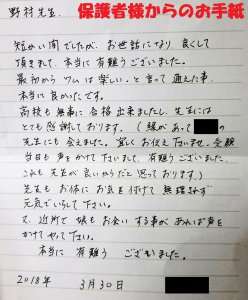 保護者様からのお手紙
野村先生
短い間でしたが、お世話になり、良くして
頂きまして、本当に有難うございました。
最初から「ツムは楽しい」と言って通えた事、
本当に良かったです。
高校も無事に合格出来ましたし、先生には
とても感謝しております。(縁があって
先生にも会えました。宜しくお伝え下さいませ。受験
当日も声をかけて下さいまして、有難うございました。
これも先生が良いからだと思っております)
先生も、お体にお気を付けて、無理されず
元気でいらして下さい。
又、近所で娘もお会いする事があれば声を
かけてやって下さい。
本当に有難うございました。
2018年 3月30日